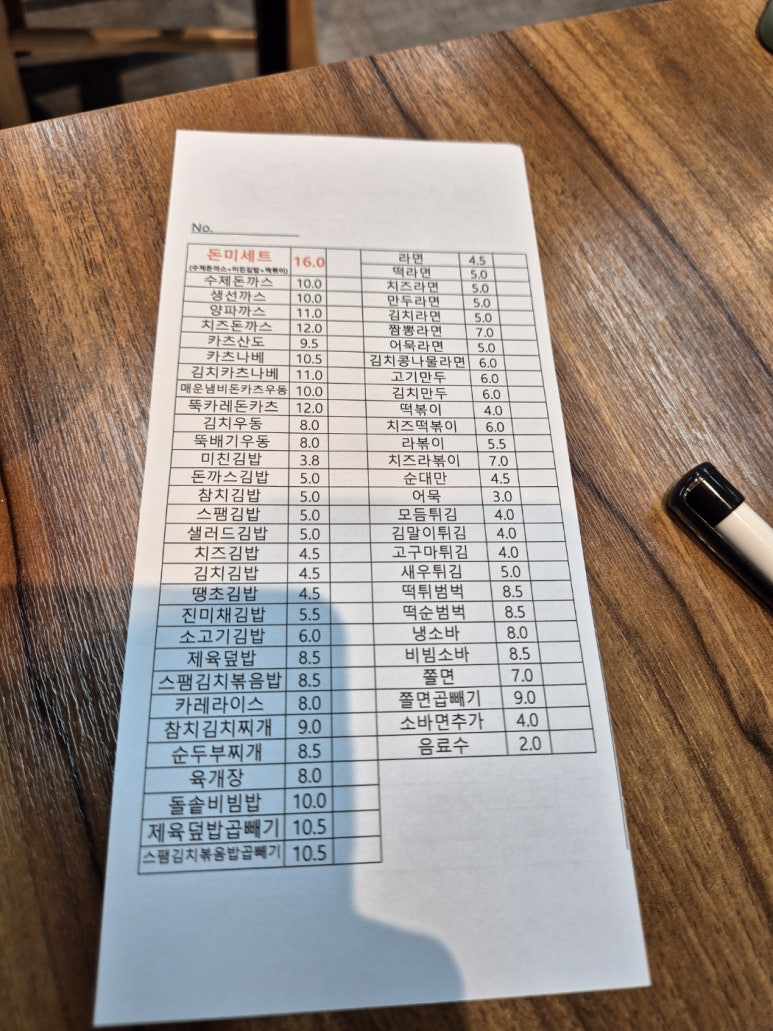 No.
돈미세트 16.0
(수제돈까스+미친김밥+떡볶이)
수제돈까스 10.0
생선까스 10.0
양파까스 11.0
치즈돈까스 12.0
카츠산도 9.5
카츠나베 10.5
김치카츠나베 11.0
매운냄비돈카츠우동 10.0
뚝카레돈카츠 12.0
김치우동 8.0
뚝배기우동 8.0
미친김밥 3.8
돈까스김밥 5.0
참치김밥 5.0
스팸김밥 5.0
샐러드김밥 5.0
치즈김밥 4.5
김치김밥 4.5
땡초김밥 4.5
진미채김밥 5.5
소고기김밥 6.0
제육덮밥 8.5
스팸김치볶음밥 8.5
카레라이스 8.0
참치김치찌개 9.0
순두부찌개 8.5
육개장 8.0
돌솥비빔밥 10.0
제육덮밥곱빼기 10.5
스팸김치볶음밥곱빼기 10.5
라면 4.5
떡라면 5.0
치즈라면 5.0
만두라면 5.0
김치라면 5.0
짬뽕라면 7.0
어묵라면 5.0
김치콩나물라면 6.0
고기만두 6.0
김치만두 6.0
떡볶이 4.0
치즈떡볶이 6.0
라볶이 5.5
치즈라볶이 7.0
순대만 4.5
어묵 3.0
모듬튀김 4.0
김말이튀김 4.0
고구마튀김 4.0
새우튀김 5.0
떡튀범벅 8.5
떡순범벅 8.5
냉소바 8.0
비빔소바 8.5
쫄면 7.0
쫄면곱빼기 9.0
소바면추가 4.0
음료수 2.0